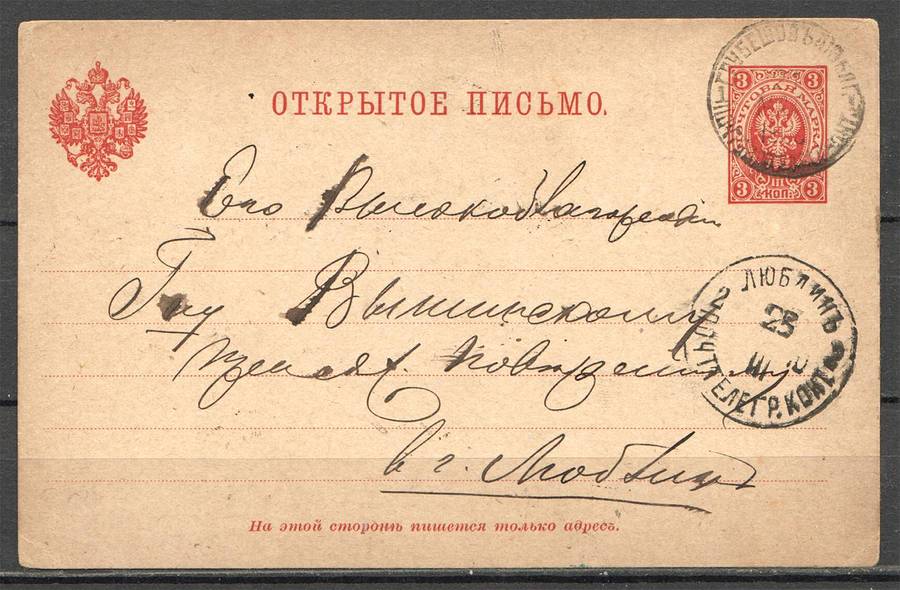 ОТКРЫТОЕ ПИСЬМО.
3 3
ПОЧТОВАЯ МАРКА
3 КОП. 3
ГРУБЕШОВЪ
Его Высокоблагородію
Гну Вышинскому
в г. Люблинъ
ЛЮБЛИНЪ
25
III
ПОЧТ. ТЕЛЕГР. КОНТ.
На этой сторонѣ пишется только адресъ.